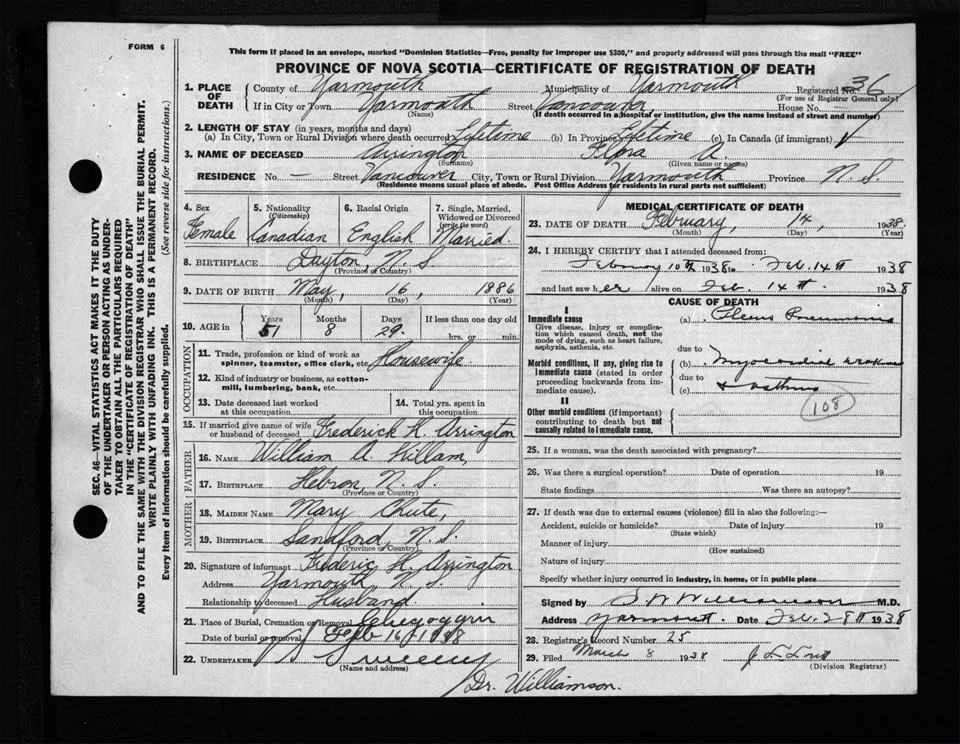 FORM 6
This form if placed in an envelope, marked "Dominion Statistics—Free, penalty for improper use $300," and properly addressed will pass through the mail "FREE"
PROVINCE OF NOVA SCOTIA—CERTIFICATE OF REGISTRATION OF DEATH
SEC. 46—VITAL STATISTICS ACT MAKES IT THE DUTY
OF THE UNDERTAKER OR PERSON ACTING AS UNDER-
TAKER TO OBTAIN ALL THE PARTICULARS REQUIRED
IN THE "CERTIFICATE OF REGISTRATION OF DEATH"
AND TO FILE THE SAME WITH THE DIVISION REGISTRAR WHO SHALL ISSUE THE BURIAL PERMIT.
WRITE PLAINLY WITH UNFADING INK. THIS IS A PERMANENT RECORD.
Every item of information should be carefully supplied. (See reverse side for instructions.)
1. PLACE OF DEATH County of Yarmouth Municipality of Yarmouth Registered No. 36
(For use of Registrar General only)
If in City or Town Yarmouth Street Vancouver House No.
(Name) (If death occurred in a hospital or institution, give the name instead of street and number)
2. LENGTH OF STAY (in years, months and days)
(a) In City, Town or Rural Division where death occurred Lifetime (b) In Province Lifetime (c) In Canada (if immigrant)
3. NAME OF DECEASED Arrington Flora A.
(Surname) (Given name or names)
RESIDENCE No. — Street Vancouver City, Town or Rural Division Yarmouth Province N.S.
(Residence means usual place of abode. Post Office Address for residents in rural parts not sufficient)
4. Sex Female
5. Nationality (Citizenship) Canadian
6. Racial Origin English
7. Single, Married, Widowed or Divorced (write the word) Married.
8. BIRTHPLACE Dayton N.S
(Province or Country)
9. DATE OF BIRTH May, 16, 1886
(Month) (Day) (Year)
10. AGE in Years 51 Months 8 Days 29. If less than one day old
hrs. or min.
OCCUPATION
11. Trade, profession or kind of work as spinner, teamster, office clerk, etc. Housewife
12. Kind of industry or business, as cotton-mill, lumbering, bank, etc.
13. Date deceased last worked at this occupation
14. Total yrs. spent in this occupation
15. If married give name of wife or husband of deceased Frederick H. Arrington
FATHER
16. NAME William A Hillam,
17. BIRTHPLACE Hebron, N.S.
(Province or Country)
MOTHER
18. MAIDEN NAME Mary Chute,
19. BIRTHPLACE Sandford, N.S.
(Province or Country)
20. Signature of informant Frederic H. Arrington
Address Yarmouth, N.S.
Relationship to deceased Husband.
21. Place of Burial, Cremation or Removal
Date of burial or removal Feb 16 1938
22. UNDERTAKER Sweeny
(Name and address)
Dr. Williamson.
MEDICAL CERTIFICATE OF DEATH
23. DATE OF DEATH February, 14, 1938.
(Month) (Day) (Year)
24. I HEREBY CERTIFY that I attended deceased from:
February 10th 1938 to Feb. 14th 1938
and last saw her alive on Feb. 14th 1938
CAUSE OF DEATH
I
Immediate cause
Give disease, injury or complication which caused death, not the mode of dying, such as heart failure, asphyxia, asthenia, etc.
(a) Pneumonia
due to
Morbid conditions, if any, giving rise to immediate cause (stated in order proceeding backwards from immediate cause).
(b) Myocardial
due to
(c) + asthma
108
II
Other morbid conditions (if important) contributing to death but not causally related to immediate cause.
25. If a woman, was the death associated with pregnancy?
26. Was there a surgical operation? Date of operation 19
State findings Was there an autopsy?
27. If death was due to external causes (violence) fill in also the following:—
Accident, suicide or homicide? Date of injury 19
(State which)
Manner of injury
(How sustained)
Nature of injury
Specify whether injury occurred in industry, in home, or in public place
Signed by S W Williamson M.D.
Address Yarmouth. Date Feb. 28th 1938
28. Registrar's Record Number 25
29. Filed March 8 1938
(Division Registrar)